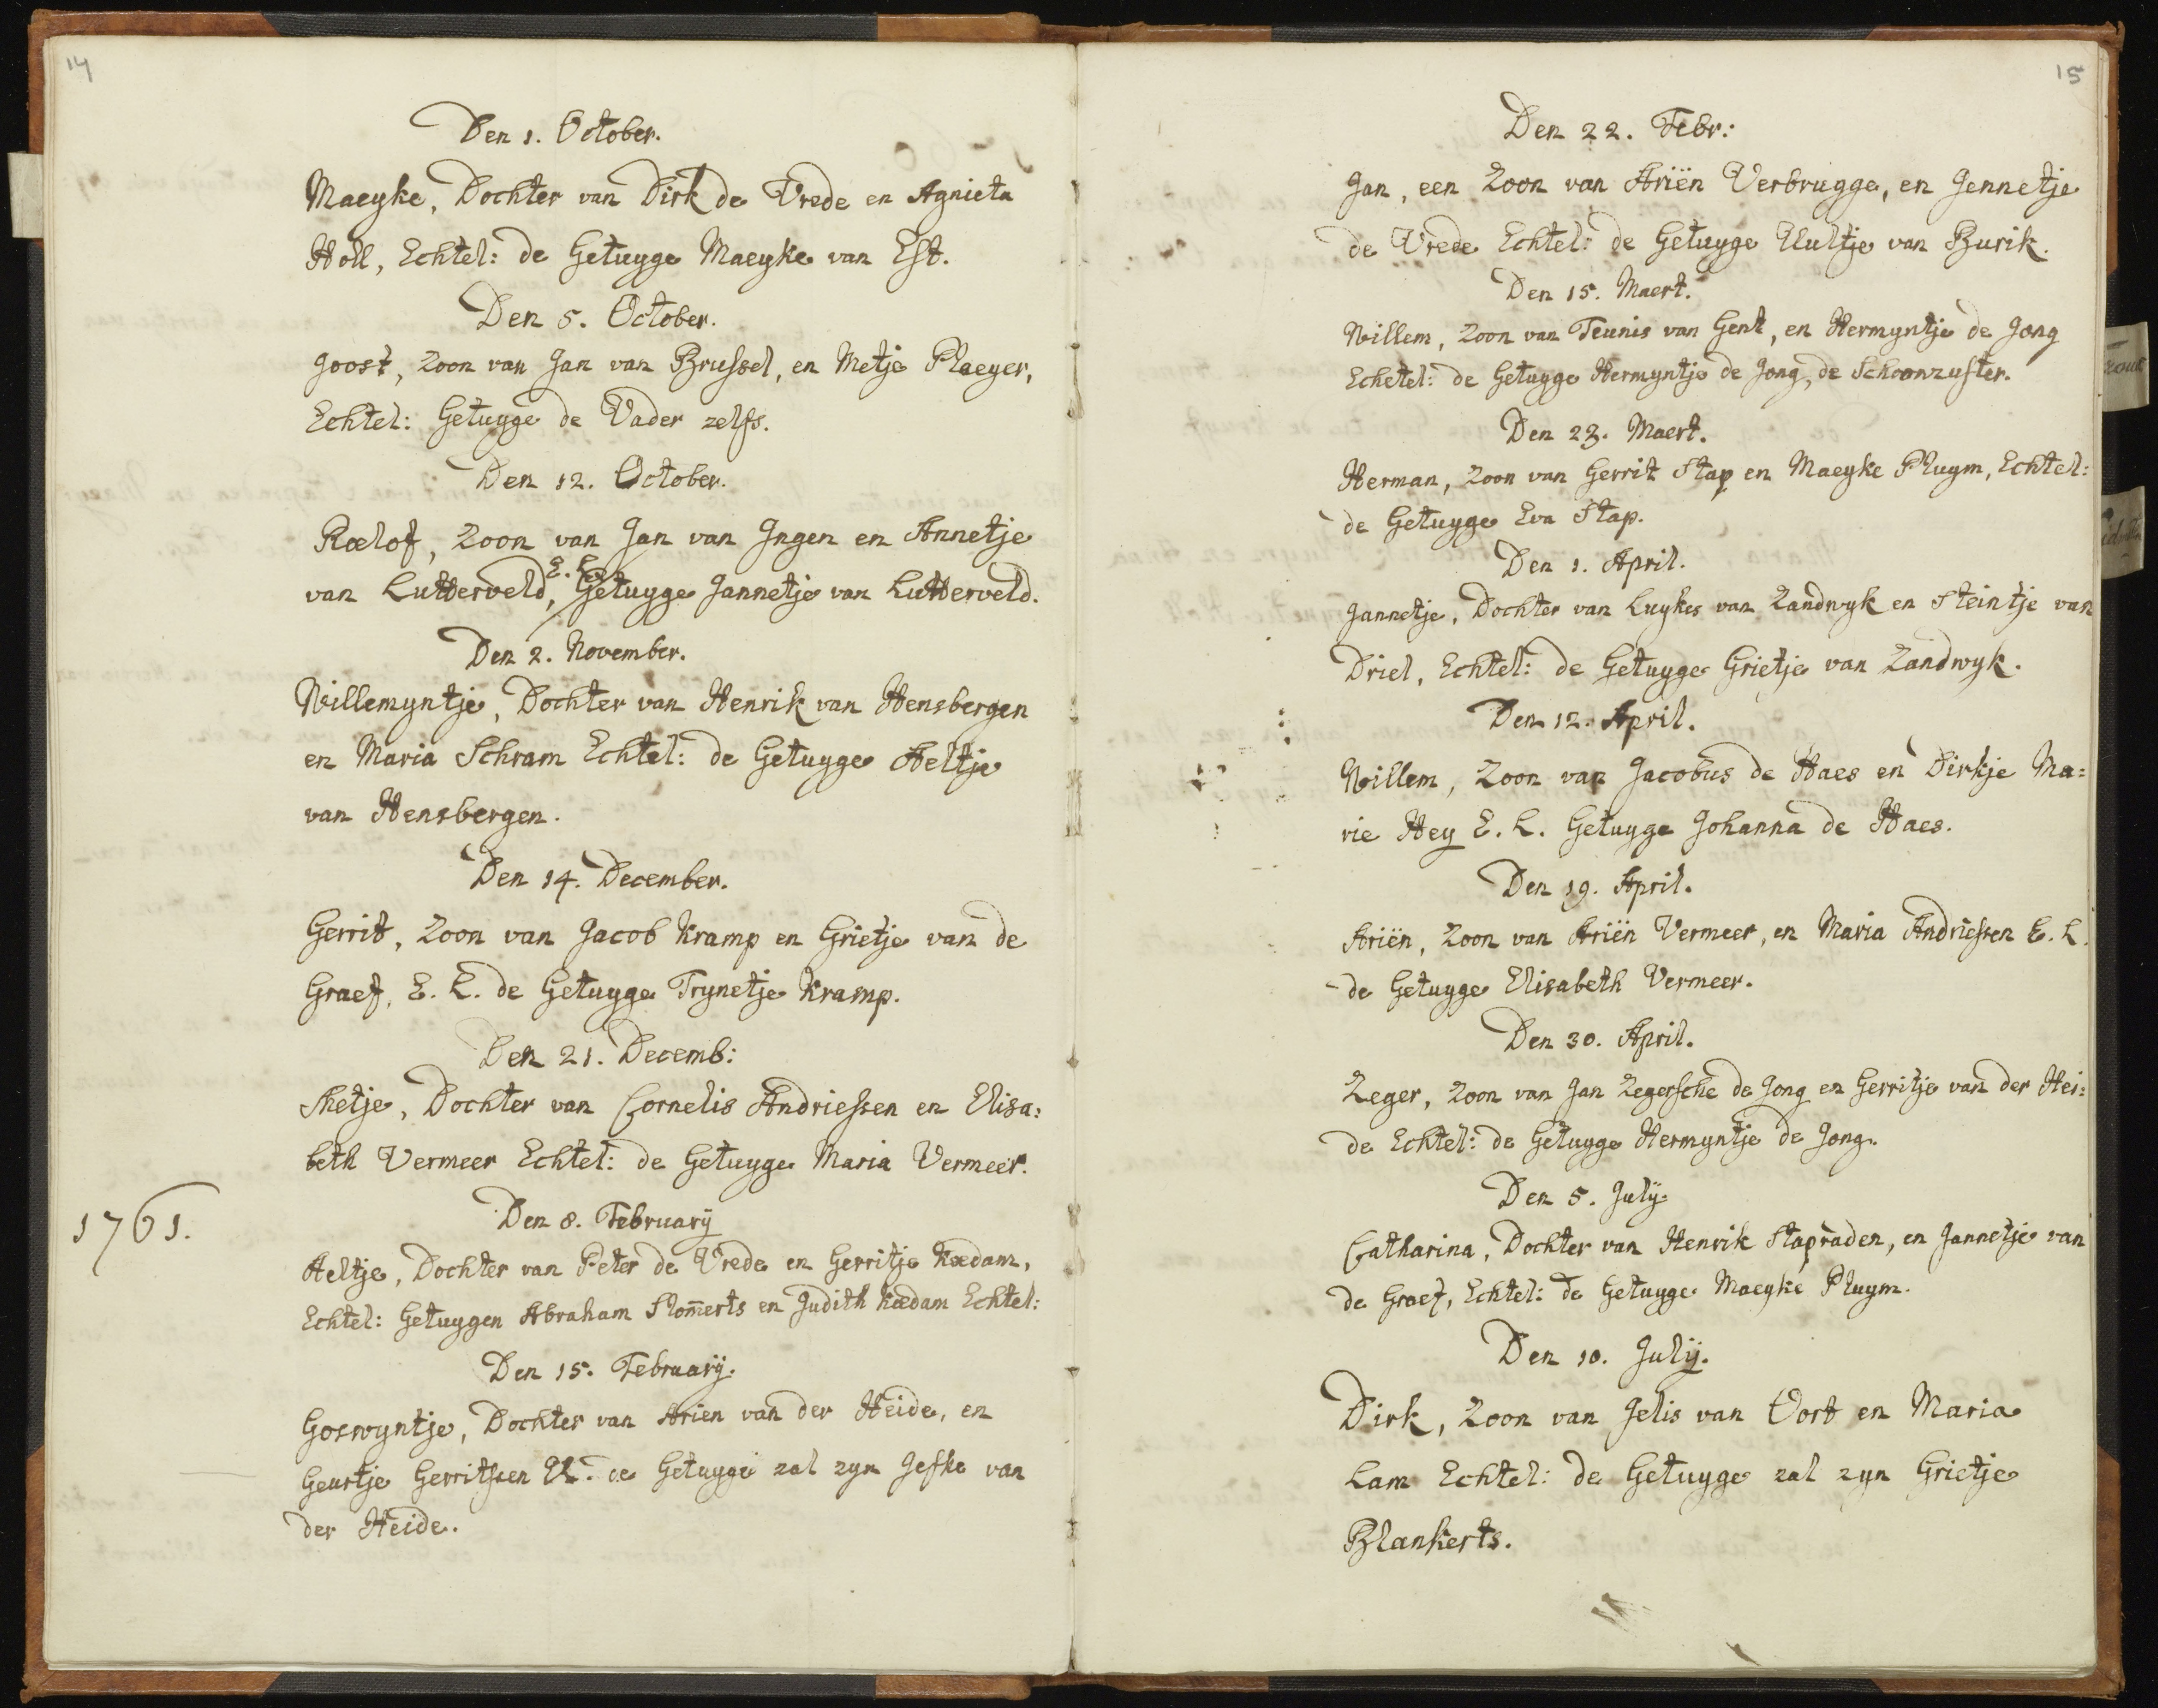 14
Den 1. October.
Maeyke, Dochter van Dirk de Vrede en Agnieta
Holl, Echtel: de Getuyge Maeyke van Est.
Den 5. October.
Joost, Zoon van Jan van Brussel, en Metje Plaeyer,
Echtel: Getuyge de Vader zelfs.
Den 12. October.
Roelof, Zoon van Jan van Ingen en Annetje
E. L.
van Lutterveld, Getuyge Jannetje van Lutterveld.
Den 2. November.
Willemyntje, Dochter van Henrik van Hensbergen
en Maria Schram Echtel: de Getuyge Aeltje
van Hensbergen.
Den 14. December.
Gerrit, Zoon van Jacob Kramp en Grietje van de
Graef, E. L. de Getuyge Trynetje Kramp.
Den 21. Decemb:
Dochter van Cornelis Andriessen en Elisa:
beth Vermeer Echtel: de Getuyge Maria Vermeer.
1761.
Den 8. February
Aeltje, Dochter van Peter de Vrede en Gerritje Koedam,
Echtel: Getuygen Abraham Slom̄erts en Judith Koedam Echtel:
Den 15. February.
Goswyntje, Dochter van Arien van der Heide, en
Geurtje Gerritssen EL. de Getuyge zal zyn Jeske van
der Heide.
15
Den 22. Febr:
Jan, een Zoon van Ariën Verbrugge, en Jennetje
de Vrede Echtel: de Getuyge van Burik.
Den 15. Maert.
Willem, Zoon van Teunis van Gent, en Hermyntje de Jong
Echetel: de Getuyge Hermyntje de Jong, de Schoonzuster.
Den 23. Maert.
Herman, Zoon van Gerrit Stap en Maeyke Pluym, Echtel:
de Getuyge Eva Stap.
Den 1. April.
Jannetje, Dochter van Luykes van Zandwyk en Steintje van
Driel, Echtel: de Getuyge Grietje van Zandwyk.
Den 12. April.
Willem, Zoon van Jacobus de Haes en Dirkje Ma:
rie Hey E. L. Getuyge Johanna de Haes.
Den 19. April.
Ariën, Zoon van Ariën Vermeer, en Maria Andriessen E. L.
de Getuyge Elisabeth Vermeer.
Den 30. April.
Zeger, Zoon van Jan Zegersche de Jong en Gerritje van der Hei:
de Echtel: de Getuyge Hermyntje de Jong.
Den 5. July
Catharina, Dochter van Henrik Stapraden, en Jannetje van
de Graef, Echtel: de Getuyge Maeyke Pluym.
Den 10. July.
Dirk, Zoon van Jelis van Oort en Maria
Lam Echtel: de Getuyge zal zyn Grietje
Blankerts.